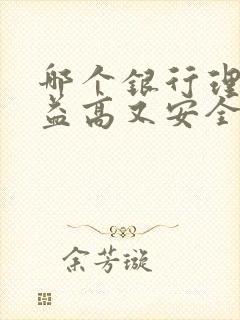 哪个银行理
益高又安全
余芳璇